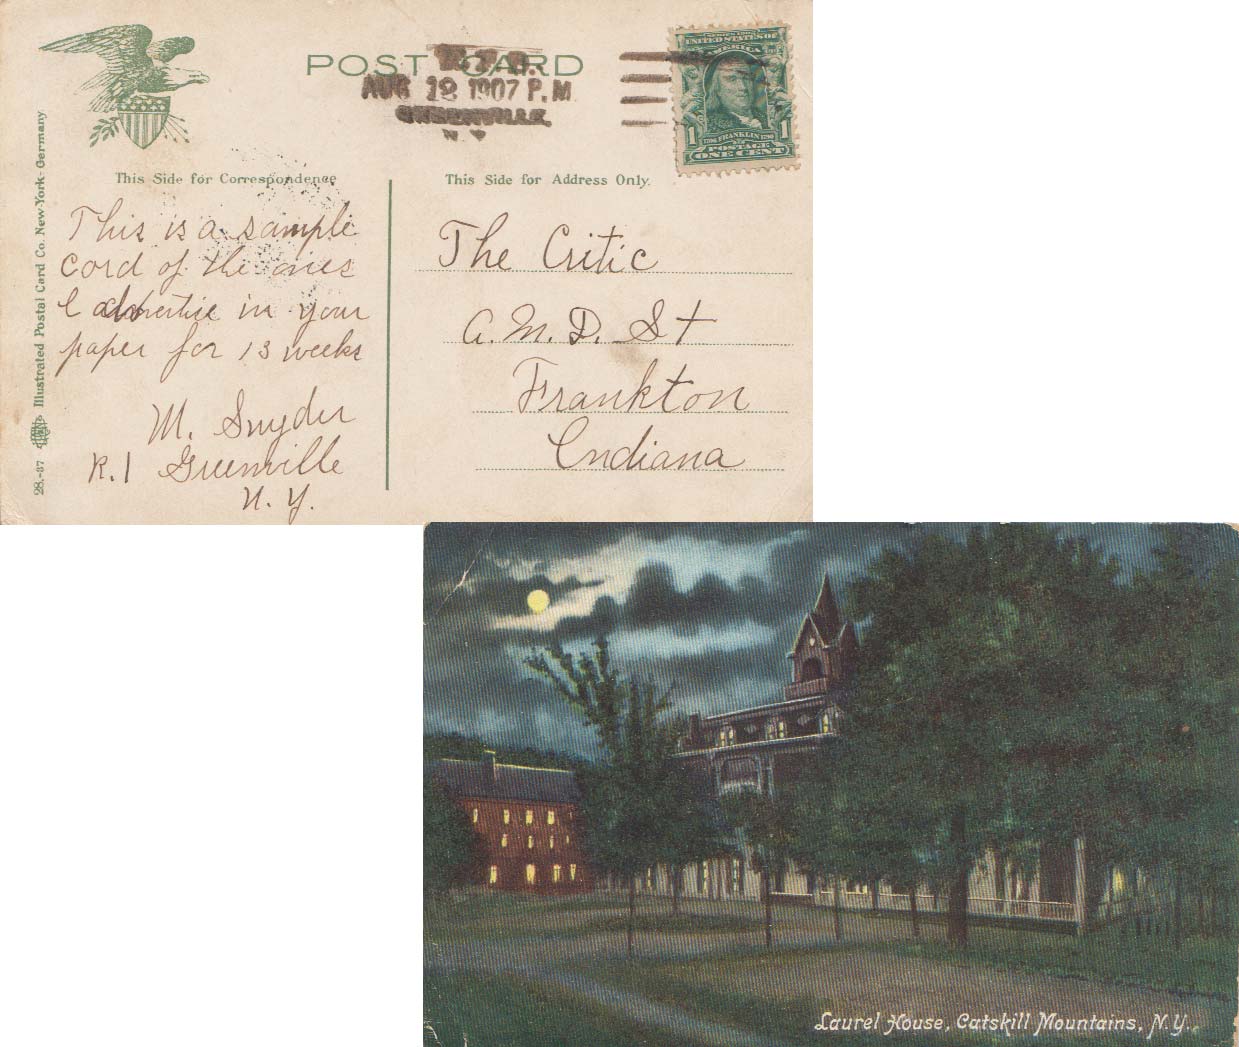 POST CARD
R.F.D.
AUG 12 1907 P.M
GREENVILLE.
N. Y.
SERIES 1902
UNITED STATES OF
AMERICA
1 1
1706 FRANKLIN 1790
POSTAGE
ONE CENT
This Side for Correspondence
This Side for Address Only.
This is a sample
Card of the ones
I advertise in your
paper for 13 weeks
M. Snyder
R.1 Greenville
N. Y.
The Critic
A.M.D. St
Frankton
Indiana
28.-87 Illustrated Postal Card Co. New-York-Germany
Laurel House, Catskill Mountains, N.Y.